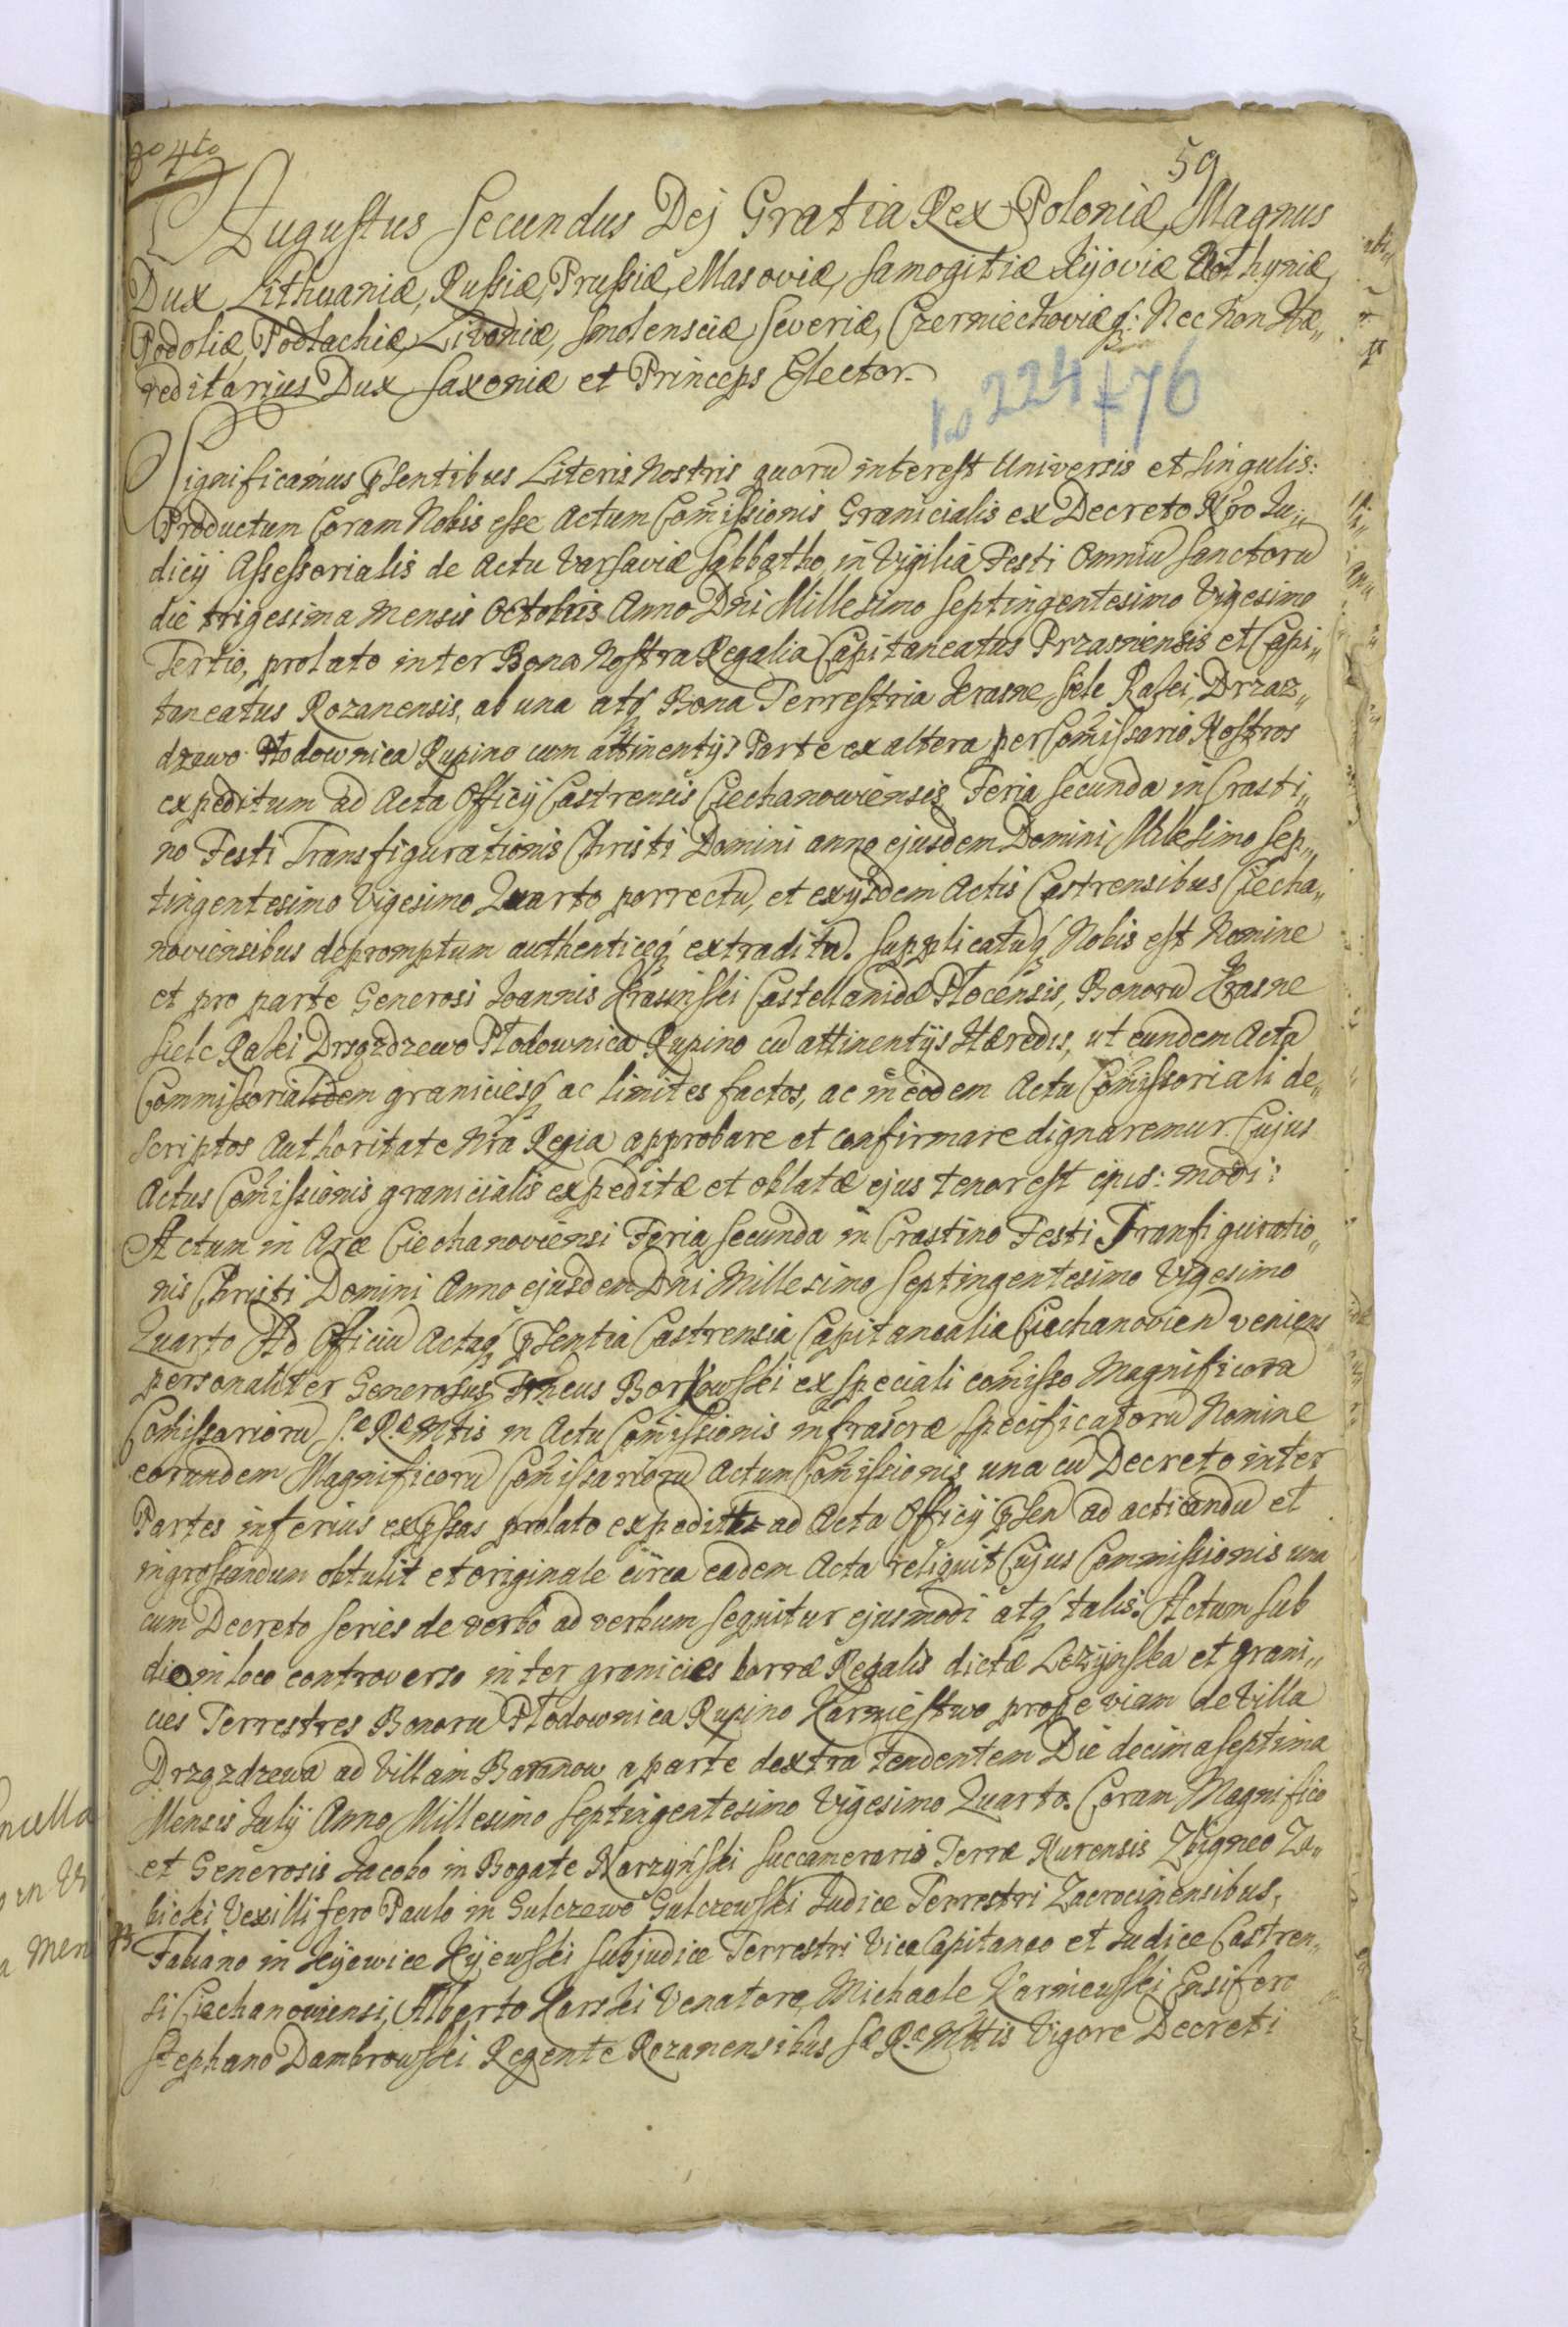 4to
59
Augustus Secundus Dej Gratia Rex Poloniæ, Magnus
Dux Lithuaniæ, Russiæ, Prussiæ, Masoviæ, Samogitiæ Kijoviæ Wolhyniæ,
Podoliæ, Podlachiæ, Livoniæ, Smolensciæ Severiæ, Czerniechoviæq: Nec Non Hæ„
reditarius Dux Saxoniæ et Princeps Elector.
224 + 76
Significamus Psentibus Literis Nostris quorū interest Universis et Singulis:
Productum Coram Nobis esse Actum Com̃issionis Granicialis ex Decreto Nr̃o Ju„
dicij Assessorialis de Actu Varsaviæ Sabbatho in Vigilia Festi Omniū Sanctorū
die trigesima Mensis Octobris Anno Dñi Millesimo Septingentesimo Vigesimo
Tertio, prolato inter Bona Nostra Regalia Capitaneatus Przasnensis et Capi„
taneatus Rozanensis, ab una atq Bona Terrestria Krasne, Siele Rakei, Drzaz„
dzewo Płodownica Rupino cum attinentijs Parte ex altera per Com̃issarios Nostros
expeditum ad Acta Officij Castrensis Ciechanoviensis Feria Secunda in Crasti„
no Festi Transfigurationis Christi Domini anno ejusdem Domini Milesimo Sep„
tingentesimo Vigesimo Quarto porrectū, et exijsdem Actis Castrensibus Ciecha„
noviensibus depromptum authenticeq extraditū. Supplicatūq Nobis est Nomine
et pro parte Generosi Joannis Krasinski Castellanidæ Płocensis, Bonorū Krasne
Sielc Rakei Drzgzdzewo Płodownica Rupino cū attinentijs Hæredis, ut eundem Actū
Commissorialem graniciesq ac limites factos, ac in eodem Actu Com̃issoriali de„
scriptos Authoritate Nr̃a Regia approbare et confirmare dignaremur. Cujus
Actus Com̃issionis granicialis expeditæ et oblatæ ejus tenor est ejus: modi:
Actum in Arce Ciechanoviensi Feria Secunda in Crastino Festi Transfiguratio„
nis Christi Domini Anno ejusdem Dñi Millesimo Septingentesimo Vigesimo
Quarto Ad Officiū Actaq Psentia Castrensia Capitanealia Ciechanovien veniens
personaliter Generosus Borkowski ex speciali com̃isso Magnificorū
Com̃issariorū S.æ R.æ Mtis in Actu Com̃issionis infrascræ specificatorū Nomine
eorundem Magnificorū Com̃issariorū Actum Com̃issionis una cū Decreto inter
Partes inferius exPssas prolato expeditæ ad Acta Officij Psen ad acticandū et
ingrossandum obtulit et originale circa eadem Acta reliquit Cujus Commissionis una
cum Decreto series de verbo ad verbum sequitur ejusmodi atq talis: Actum sub
dio in loco controverso inter granicies borræ Regalis dictæ Lezijnska et grani„
cies Terrestres Bonorū Płodownica Rupino Karniestwo prope viam de Villa
Drzgzdzewa ad Villam Baranow a parte dextra tendentem Die decima septima
Mensis Julij Anno Millesimo Septingentesimo Vigesimo Quarto. Coram Magnifico
et Generosis Jacobo in Bogate Narzyński Succamerario Terræ Nurensis Zbigneo Za„
bicki Vexillifero Paulo in Sulczewo Sulczewski Judice Terrestri Zacrocimensibus,
Fabiano in Kijewice Kijewski Subjudice Terrestri Vice Capitaneo et Judice Castren„
si Ciechanoviensi, Alberto Karski Venatore, Michaele Karniewski Ensifero
Stephano Dambrowski Regente Rozanensibus S.æ R.æ Mttis Vigore Decreti